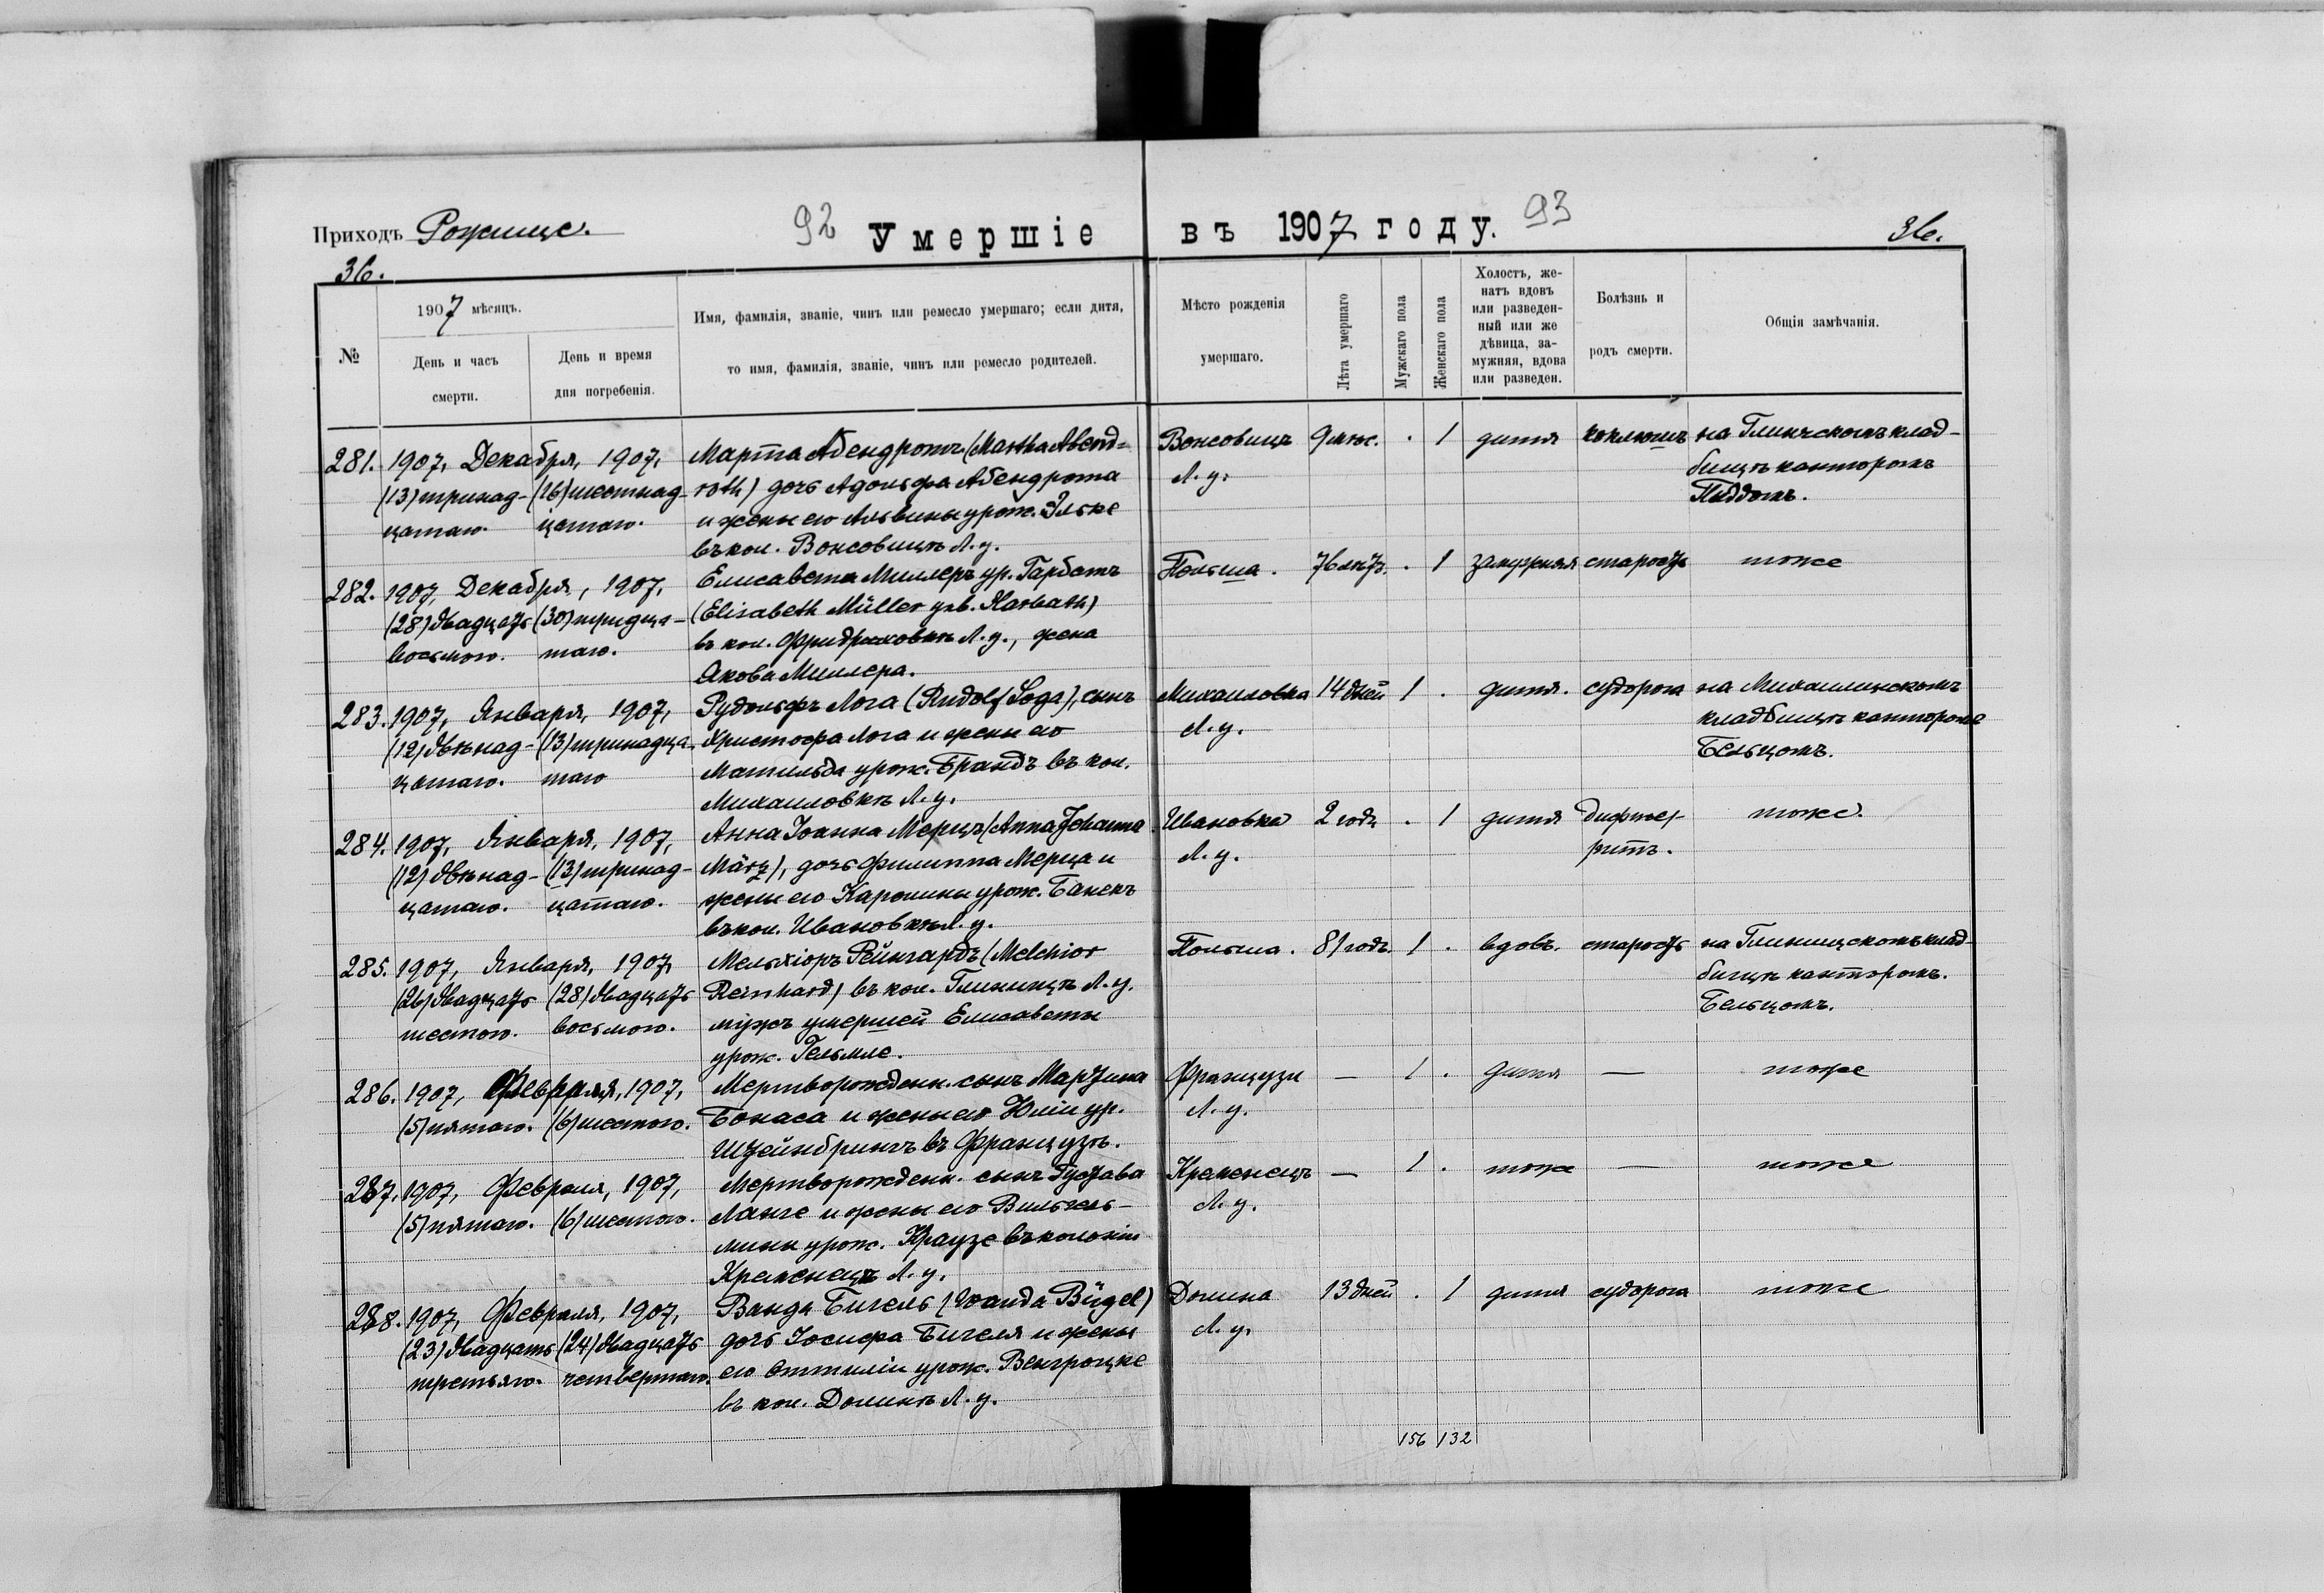 Приходъ Рожище.
92 Умершіе
въ 1907 году. 93
36.
36.
№
1907 мѣсяцъ.
День и часъ
смерти.
День и время
дня погребенія.
Имя, фамилія, званіе, чинъ или ремесло умершаго; если дитя,
то имя, фамилія, званіе, чинъ или ремесло родителей.
Мѣсто рожденія
умершаго.
Лѣта умершаго
Мужскаго пола
Женскаго пола
Холостъ, же-
натъ вдовъ
или разведен-
ный или же
дѣвица, за-
мужняя, вдова
или разведен.
Болѣзнь и
родъ смерти.
Общія замѣчанія.
281.
1907, Декабря, 1907,
(13) тринад-
цатаго.
(16) шестнад-
цатаго.
Марта Абендротъ (Martha Abend-
roth) дочь Адольфа Абендрота
и жены его Альвины урож. Эльке
въ кол. Вонсовицѣ Л. у.
Вонсовицъ
Л. у.
9 мѣс.
.
1
дитя
коклюшъ
на Глинчскомъ клад-
бищѣ канторомъ
282.
1907, Декабря, 1907,
(28) двадцать
восьмого.
(30) тридца-
таго.
Елисавета Миллеръ ур. Гарбатъ
(Elisabeth Müller geb. Harbath)
въ кол. Фридриховкѣ Л. у., жена
Якова Миллера.
Польша.
76 лѣтъ.
.
1
замужняя
старость
тоже
283.
1907, Января, 1907,
(12) двѣнад-
цатаго.
(13) тринадца-
таго
Рудольфъ Лога (Rudolf Loga), сынъ
Христофа Лога и жены его
Матильда урож. Брандъ въ кол.
Михаиловкѣ Л. у.
Михаиловка
Л. у.
14 дней
1
.
дитя.
судорога
на Михаилинскомъ
кладбищѣ канторомъ
Бельцомъ.
284.
1907, Января, 1907,
(12) двѣнад-
цатаго.
(13) тринад-
цатаго.
Анна Іоанна Мерцъ (Anna Johanna
März), дочь Филиппа Мерца и
жены его Каролины урож. Банекъ
въ кол. Ивановкѣ Л. у.
Ивановка
Л. у.
2 года
.
1
дитя
дифте-
ритъ.
тоже.
285.
1907, Января, 1907,
(26) двадцать
шестого.
(28) двадцать
восьмого.
Мельхіоръ Рейнгардъ (Melchior
Reinhard) въ кол. Глинищѣ Л. у.
мужъ умершей Елисаветы
урож. Гельмле.
Польша.
81 годъ.
1
.
вдовъ.
старость
на Глинищскомъ клад-
бищѣ канторомъ.
Бельцомъ.
286.
1907, Февраля, 1907,
(5) пятаго.
(6) шестого.
Мертворожденн. сынъ Мартина
Бокаса и жены его Юліи ур.
Штейнбринкъ въ Французѣ.
Французы
Л. у.
—
1
.
дитя
—
тоже
287.
1907, Февраля, 1907,
(5) пятаго.
(6) шестого.
Мертворожденн. сынъ Густава
Ланге и жены его Вильгель-
мины урож. Краузе въ колоніи
Кременецъ Л. у.
Кременецъ
Л. у.
—
1
.
тоже
—
тоже
288.
1907, Февраля, 1907,
(23) двадцать
третьяго.
(24) двадцать
четвертаго.
Ванда Бигель (Wanda Bügel)
дочь Іосифа Бигеля и жены
его Оттиліи урож. Венгроцке
въ кол. Долинѣ Л. у.
Долина
Л. у.
13 дней
.
1
дитя
судорога
тоже
156
132